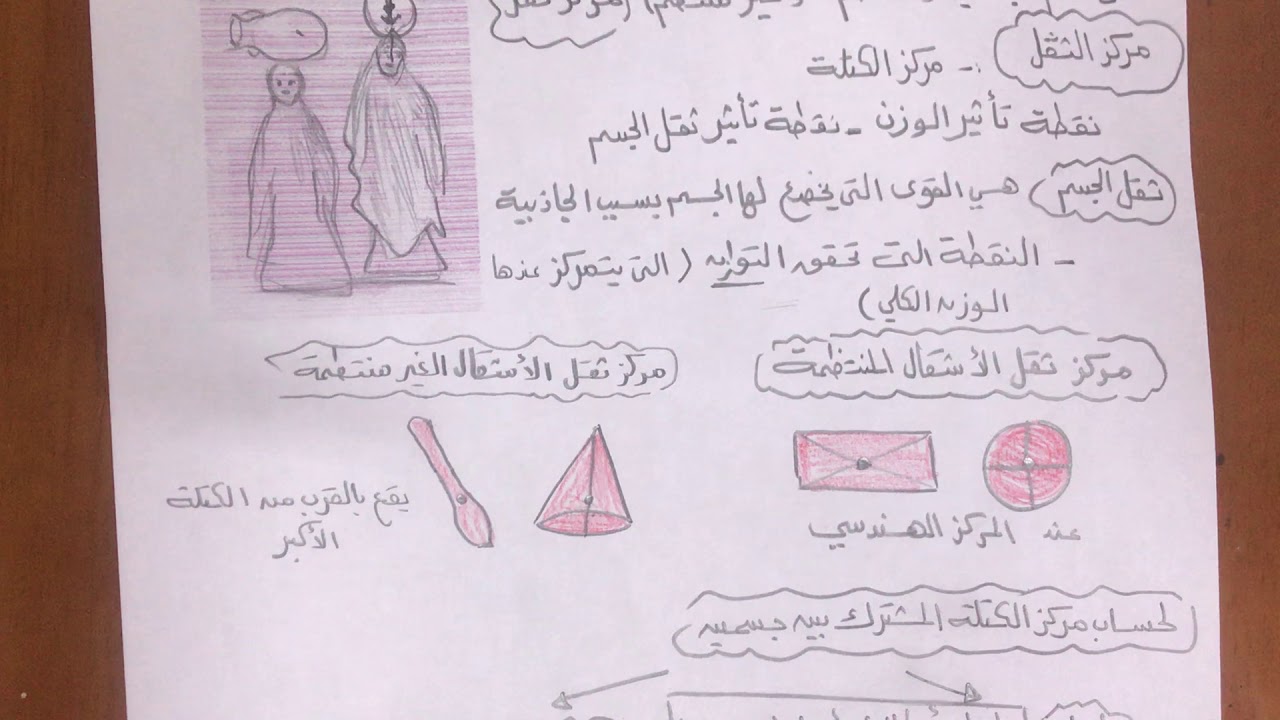 مركز الثقل
- مركز الكتلة
نقطة تأثير الوزن - نقطة تأثير ثقل الجسم
ثقل الجسم هي القوى التي يخضع لها الجسم بسبب الجاذبية
- النقطة التي تحقق التوازن (التي يتمركز عندها
الوزن الكلي)
مركز ثقل الأشكال المنتظمة
مركز ثقل الأشكال الغير منتظمة
عند المركز الهندسي
يقع بالقرب من الكتلة
الأكبر
لحساب مركز الكتلة المشترك بين جسمين